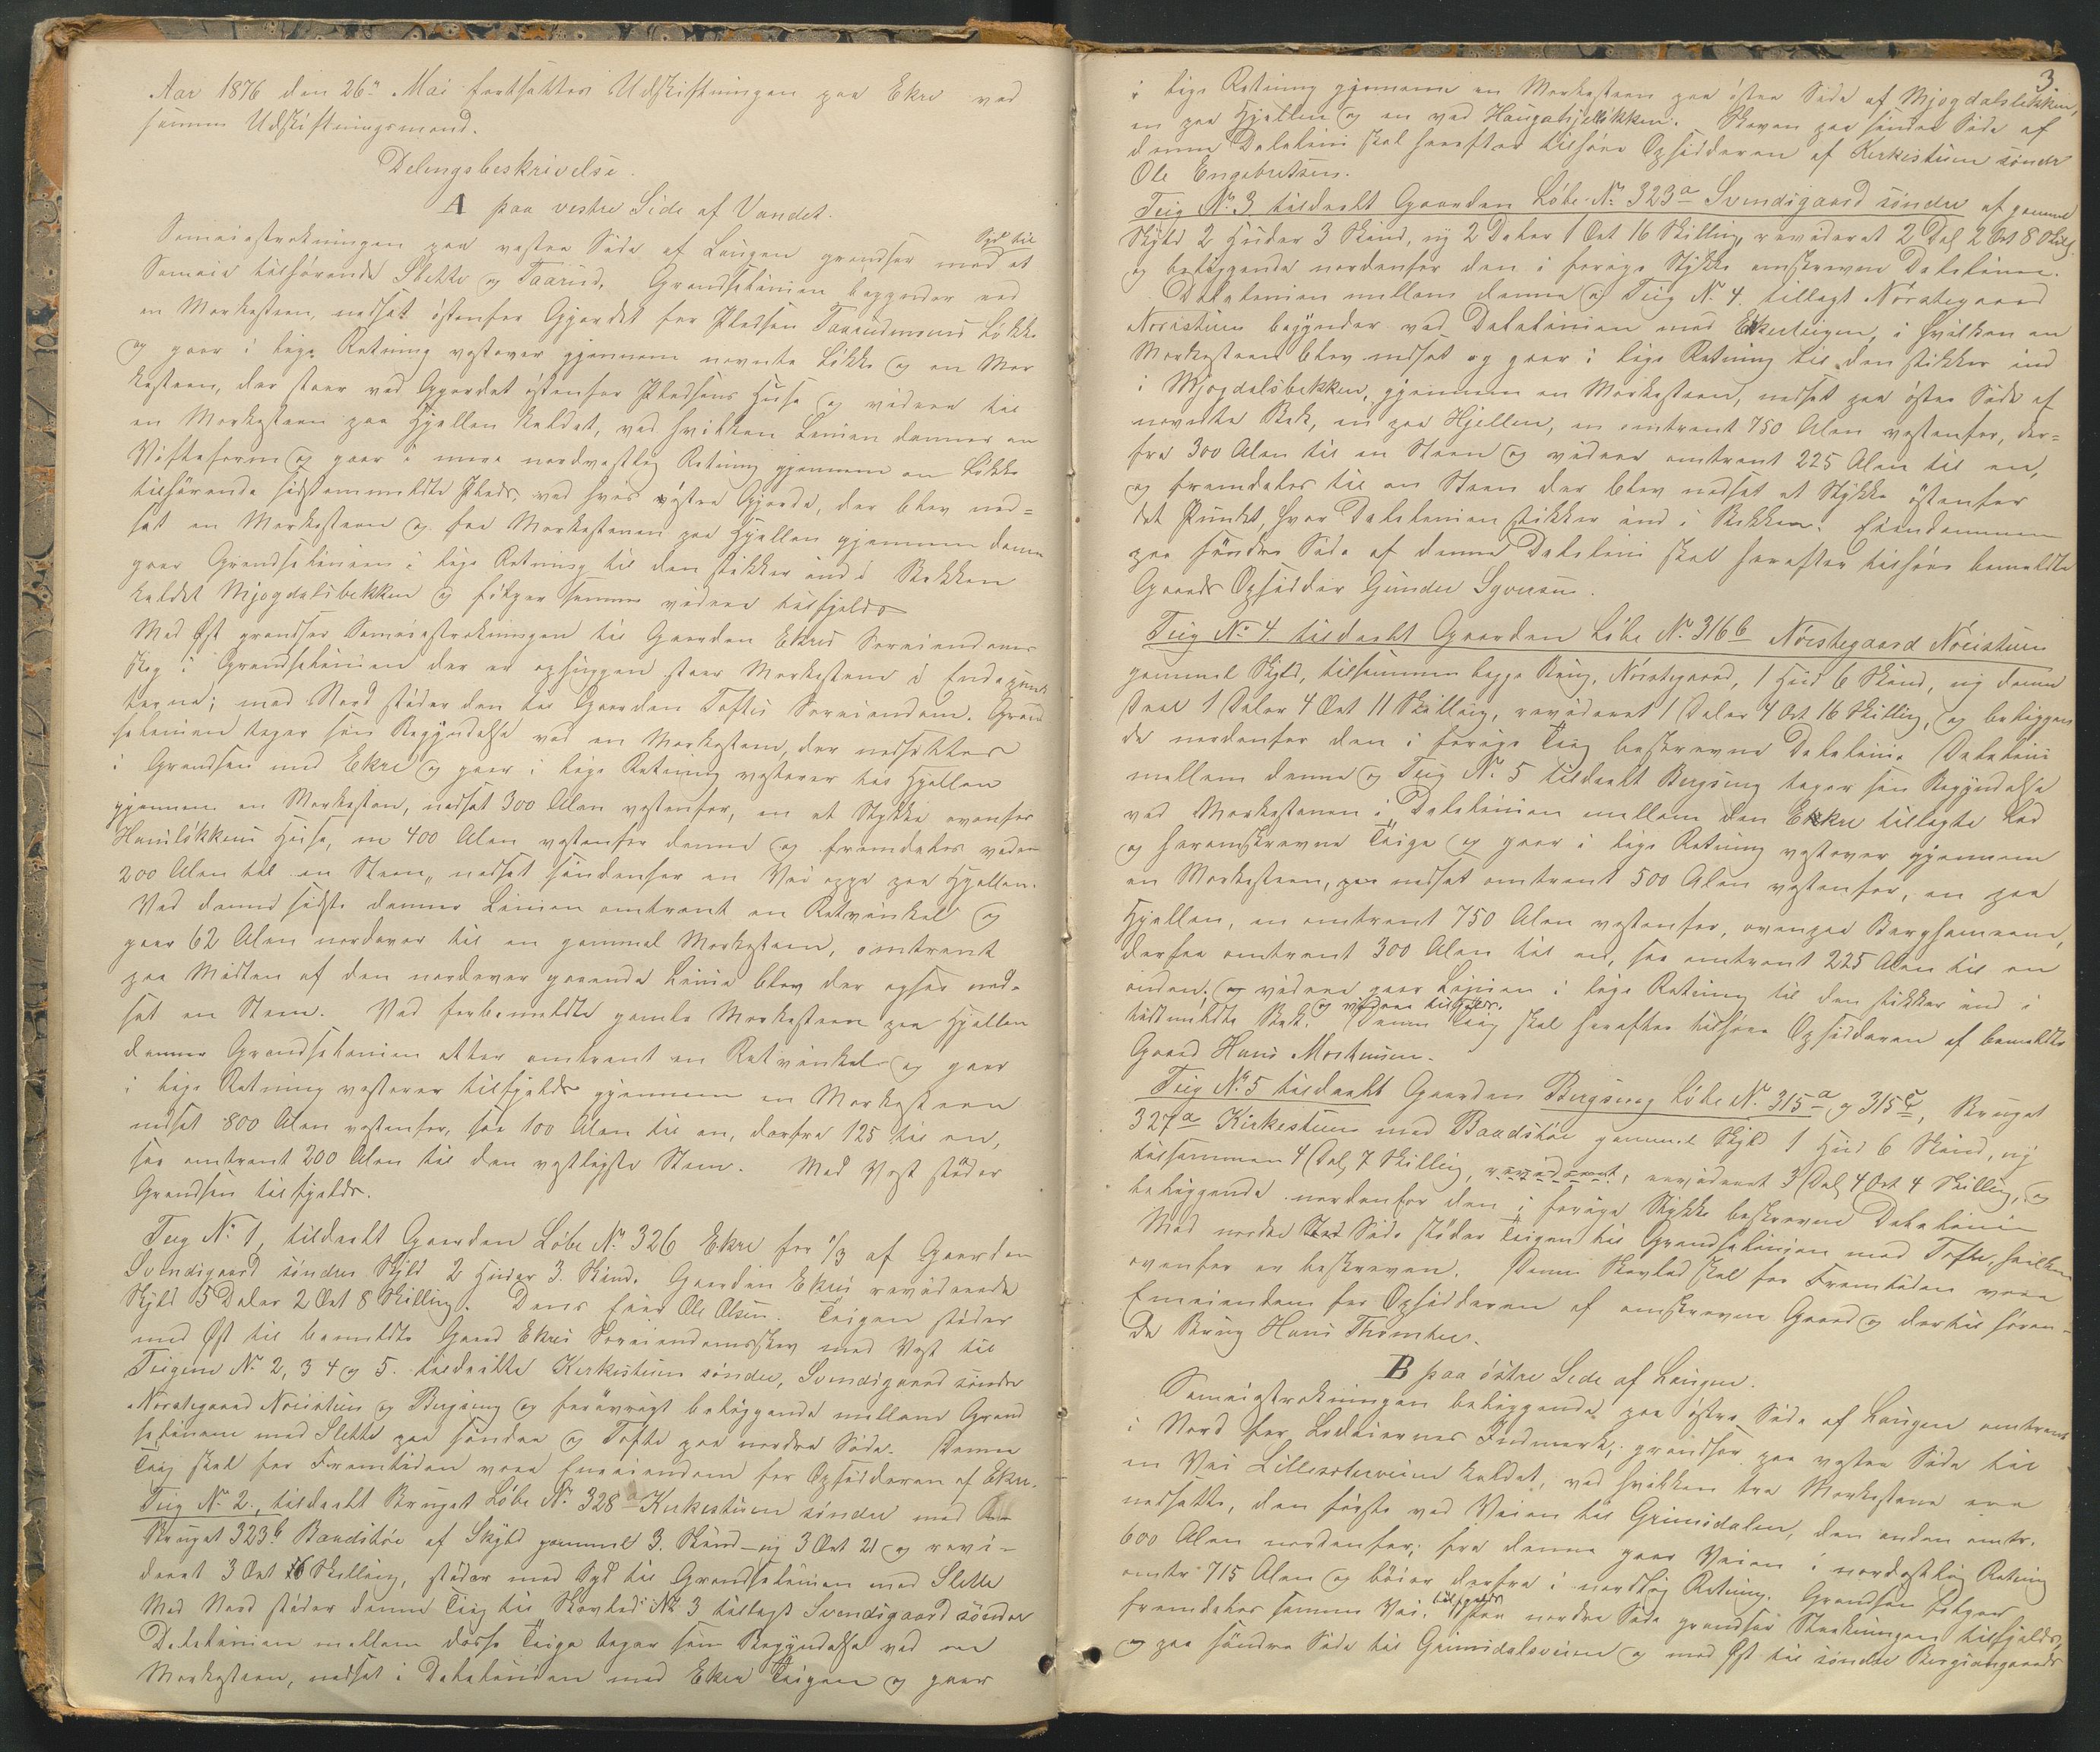 Aar 1876 den 26n Mai fortsattes Udskiftningen paa Ekre ved
samme Udskiftningsmænd.
Delingsbeskrivelse.
A paa vestre Side af Vandet.
Sameiestrækningen paa vestre Side af Laugen grændser mod Syd til et
Sameie tilhørende Slette og Taarud. Grændselinien begynder ved
en Merkesteen, nedsat østenfor Gjerdet for Pladsen Taarudmoens Løkke
og gaar i lige Retning vestover gjennem nævnte Løkke og en Mer
kesteen, der staar ved Gjerdet østenfor Pladsens Huse og videre til
en Merkesteen paa Hjellen kaldet, ved hvilken Linien danner en
Vifteform og gaar i mere nordvestlig Retning gjennem en Løkke
tilhørende sidstanmeldte Plads, ved hvis vestre Gjerde, der blev ned-
sat en Merkesteen og fra Merkestenen paa Hjellen gjennem denne
gaar Grændselinien i lige Retning til den stikker ind i Bekken
kaldet Mjogdalsbekken og følger samme videre tilfjelds
Med Øst grændser Sameiestrækningen til Gaarden Ekres Særeiendoms
skog i Grændselinien der er ophuggen staar Merkestene i Endepunk
terne; med Nord støder den til Gaarden Toftes Særeiendom. Grænd
selinien tager sin Begyndelse ved en Merkesteen, der nedsattes
i Grændsen med Ekre og gaar i lige Retning vestover til Hjellen
gjennem en Merkesten, nedsat 300 Alen vestenfor, en et Stykke ovenfor
Hansløkkens Huse, en 400 Alen vestenfor denne og fremdeles videre
200 Alen til en Steen, nedsat søndenfor en Vei oppe paa Hjellen.
Ved denne sidste danner Linien omtrent en Retvinkel og
gaar 62 Alen nordover til en gammel Merkesteen, omtrent
paa Midten af den nordover gaaende Linie blev der ogsaa ned-
sat en Steen. Ved forbemeldte gamle Merkesteen paa Hjellen
danner Grændselinien atter omtrent en Retvinkel og gaar
i lige Retning vestover tilfjelds gjennem en Merkesteen
nedsat 800 Alen vestenfor, saa 100 Alen til en, derfra 125 til en,
saa omtrent 200 Alen til den vestligste Steen. Med Vest støder
Grændsen tilfjelds.
Teig No 1, tildeelt Gaarden Løbe No 326 Ekre for 1/3 af Gaarden
Svendsgaard søndre Skyld 2 Huder 3. Skind. Gaarden Ekres reviderede
Skyld 5 Daler 2 Ort 8 Skilling. Dens Eier Ole Olsen. Teigen støder
med Øst til bemeldte Gaard Ekres Særeiendomsskov med Vest til
Teigene No 2, 3 4 og 5. tildeelte Kirkestuen søndre, Svendsgaard søndre
Nørstegaard Nøristuen og Bergseng og forøvrigt beliggende mellem Grænd
selinierne med Slette paa søndre og Tofte paa nordre Side. Denne
Teig skal for Fremtiden være Eneeiendom for Opsidderen af Ekre.
Teig No 2., tildeelt Bruget Løbe No 328a Kirkestuen søndre med
Bruget 323b Baadstøe af Skyld gammel 3. Skind – ny 3 Ort 21 og revi-
deret 3 Ort 16 Skilling, støder med Syd til Grændselinien med Slette
Med Nord støder denne Teig til Skovlod No 3 tillagt Svendsgaard søndre
Delelinien mellem disse Teige tager sin Begyndelse ved en
Merkesteen, nedsat i Delelinien med Ekre Teigen og gaar
3
i lige Retning gjennem en Merkesteen paa østre Side af Mjogdalsbekken,
en paa Hjellen og en ved Haugahjelløkken. Skoven paa søndre Side af
denne Delelinie skal herefter tilhøre Opsidderen af Kirkestuen søndre
Ole Engebretsen.
Teig No 3 tildeelt Gaarden Løbe No 323a Svendsgaard søndre af gammel
Skyld 2 Huder 3 Skind, ny 2 Daler 1 Ort 16 Skilling, revideret 2 Dal 2 Ort 8 Skillg
og beliggende nordenfor den i forrige Stykke omskrevne Delelinie.
Delelinien mellem denne og Teig No 4. tillagt Nørstegaard
Nøristuen begynder ved Delelinien med Ekreteigen, i hvilken en
Merkesteen blev nedsat og gaar i lige Retning til den stikker ind
i Mjogdalsbekken, gjennem en Merkesteen, nedsat paa østre Side af
nævnte Bæk, en paa Hjellen, en omtrent 750 Alen vestenfor, der-
fra 300 Alen til en Steen og videre omtrent 225 Alen til en,
og fremdeles til en Steen der blev nedsat et Stykke østenfor
det Punkt, hvor Delelinien stikker ind i Bekken. Eiendommen
paa søndre Side af denne Delelinie skal herefter tilhøre bemeldte
Gaards Opsidder Gunder Syversen.
Teig No 4. tildeelt Gaarden Løbe No 316b Nørstegaard Nøristuen
gammel Skyld, tilsammen begge Brug, Nørstegaard, 1 Hud 6 Skind, ny denne
Deel 1 Daler 4 Ort 11 Skilling, revideret 1 Daler 4 Ort 16 Skilling, og beliggen
de nordenfor den i forrige Teig beskrevne Delelinie. Delelinien
mellem denne og Teig No 5 tildeelt Bergseng tager sin Begyndelse
ved Merkestenen i Delelinien mellem den Ekre tillagte Lod
og heromskrevne Teige og gaar i lige Retning vestover gjennem
en Merkesteen, nedsat omtrent 500 Alen vestenfor, en paa
Hjellen, en omtrent 750 Alen vestenfor, ovenpaa Berghammeren,
derfra omtrent 300 Alen til en, saa omtrent 225 Alen til en
anden, og videre gaar Linien i lige Retning til den stikker ind i
tidtmeldte Bæk. og videre tilfjelds. Denne Teig skal herefter tilhøre Opsidderen af bemeldte
Gaard Hans Mortensen.
Teig No 5 tildeelt Gaarden Bergseng Løbe No 315a og 315c, Bruget
327a Kirkestuen med Baadstøe gammel Skyld 1 Hud 6 Skind, ny
tilsammen 4 Dal, 7 Skilling, revideret, revideret 3 Dal 4 Ort 4 Skilling, og
beliggende nordenfor den i forrige Stykke beskrevne Delelinie
Med nordre Side støder Teigen til Grændselinien med Tofte, hvilken
ovenfor er beskreven. Denne Skovlod skal for Fremtiden være
Eneeiendom for Opsidderen af omskrevne Gaard og dertil høren-
de Brug Hans Thomter.
B paa østre Side af Laugen.
Sameiestrækningen beliggende paa østre Side af Laugen omtrent
i Nord for Lodeiernes Indmark, grændser paa vestre Side til
en Vei kaldet, ved hvilken tre Merkestene ere
nedsatte, den første ved Veien til Grimsdalen, den anden omtr.
600 Alen nordenfor; fra denne gaar Veien i nordostlig Retning
omtr 715 Alen og bøier derfra i nordlig Retning. Grændsen følger
fremdeles samme Vei tilfjelds. Paa nordre Side grændser Strækningen tilfjelds,
og paa søndre Side til Grimsdalsveien og med Øst til søndre Bergsengaards